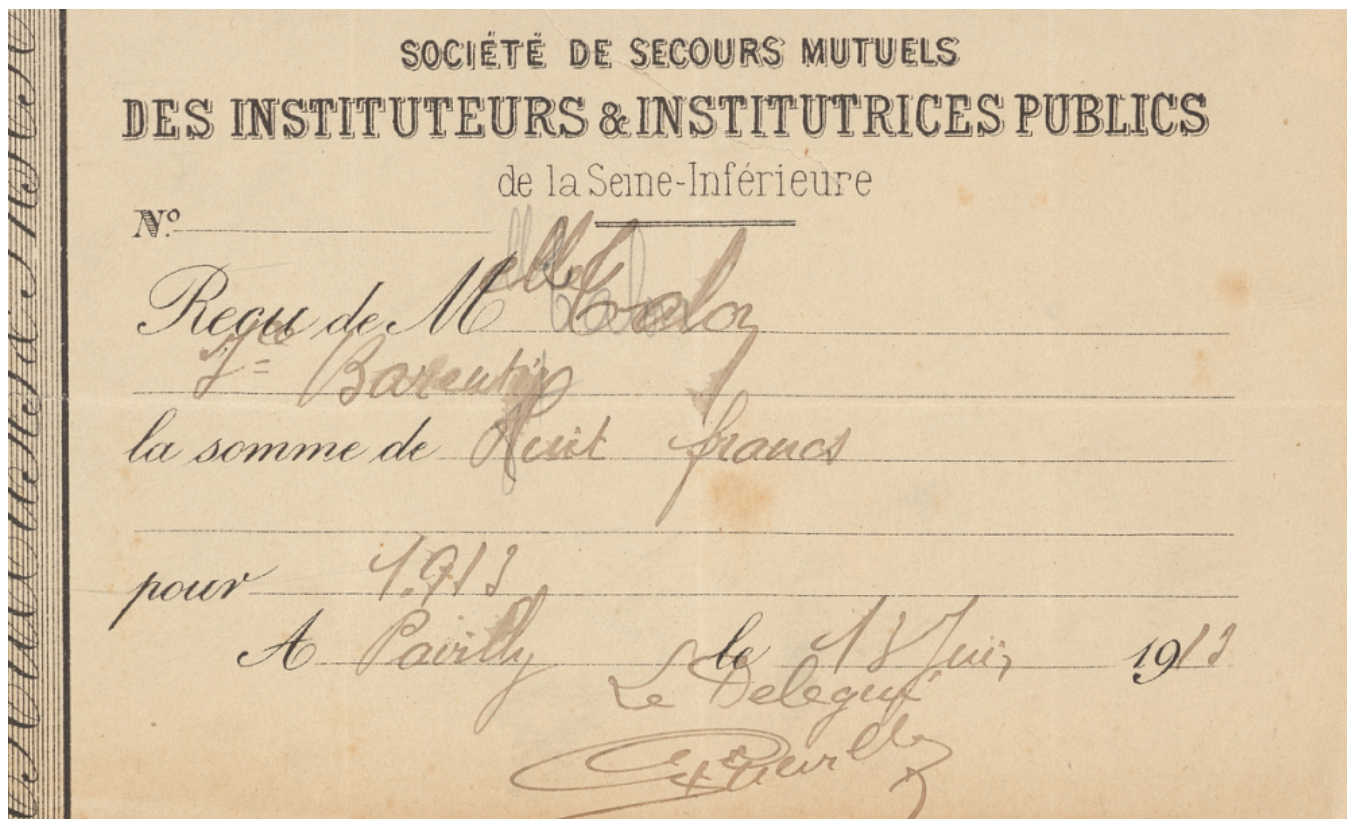 SOCIÉTÉ DE SECOURS MUTUELS
DES INSTITUTEURS & INSTITUTRICES PUBLICS
de la Seine-Inférieure
N°
Reçu de Melle
Barentin
la somme de Huit francs
pour 1913
A Pavilly le 13 Juin 1913
Le Délégué